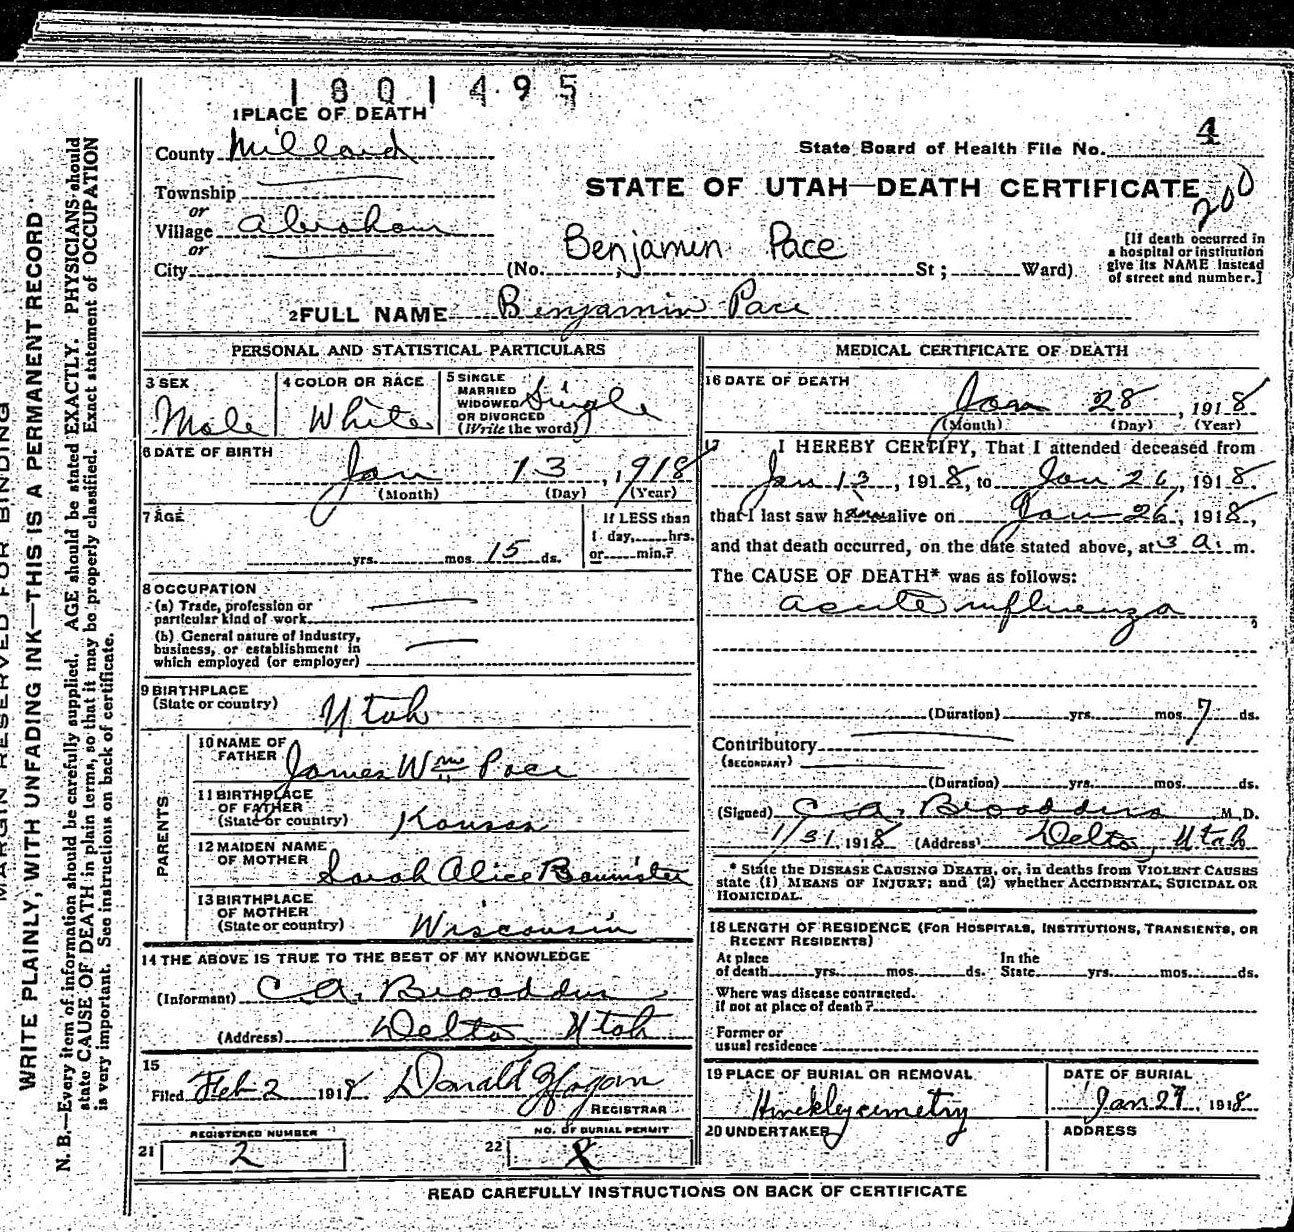 1801495
1 PLACE OF DEATH
County Millard
State Board of Health File No. 4
Township
STATE OF UTAH—DEATH CERTIFICATE
200
or
Village Abraham
or
City
Benjamin Pace
(No. St; Ward)
[If death occurred in
a hospital or institution
give its NAME instead
of street and number.]
2 FULL NAME Benjamin Pace
PERSONAL AND STATISTICAL PARTICULARS
3 SEX
Male
4 COLOR OR RACE
White
5 SINGLE
MARRIED
WIDOWED
OR DIVORCED
(Write the word)
Single
6 DATE OF BIRTH
Jan 13, 1918
(Month) (Day) (Year)
7 AGE
yrs. mos. 15 ds.
If LESS than
1 day, hrs.
or min.?
8 OCCUPATION
(a) Trade, profession or
particular kind of work
(b) General nature of industry,
business, or establishment in
which employed (or employer)
9 BIRTHPLACE
(State or country)
Utah
PARENTS
10 NAME OF
FATHER
James Wm Pace
11 BIRTHPLACE
OF FATHER
(State or country)
Kansas
12 MAIDEN NAME
OF MOTHER
Sarah Alice Bannister
13 BIRTHPLACE
OF MOTHER
(State or country)
Wisconsin
14 THE ABOVE IS TRUE TO THE BEST OF MY KNOWLEDGE
(Informant) C A. Broaddus
(Address) Delta Utah
15
Filed Feb 2 1918 Donald
REGISTRAR
REGISTERED NUMBER
21 2
NO. OF BURIAL PERMIT
22
MEDICAL CERTIFICATE OF DEATH
16 DATE OF DEATH
Jan 28, 1918
(Month) (Day) (Year)
17 I HEREBY CERTIFY, That I attended deceased from
Jan 13, 1918, to Jan 26, 1918
that I last saw him alive on Jan 26, 1918,
and that death occurred, on the date stated above, at 3 a. m.
The CAUSE OF DEATH* was as follows:
acute influenza
(Duration) yrs. mos. 7 ds.
Contributory
(SECONDARY)
(Duration) yrs. mos. ds.
(Signed) C A. Broaddus M. D.
1/31 1918 (Address) Delta, Utah
* State the DISEASE CAUSING DEATH, or, in deaths from VIOLENT CAUSES
state (1) MEANS OF INJURY; and (2) whether ACCIDENTAL, SUICIDAL OR
HOMICIDAL.
18 LENGTH OF RESIDENCE (FOR HOSPITALS, INSTITUTIONS, TRANSIENTS, OR
RECENT RESIDENTS)
At place In the
of death yrs. mos. ds. State yrs. mos. ds.
Where was disease contracted,
if not at place of death?
Former or
usual residence
19 PLACE OF BURIAL OR REMOVAL
Hinckley cemetry
DATE OF BURIAL
Jan 29, 1918
20 UNDERTAKER
ADDRESS
READ CAREFULLY INSTRUCTIONS ON BACK OF CERTIFICATE
MARGIN RESERVED FOR BINDING
WRITE PLAINLY, WITH UNFADING INK—THIS IS A PERMANENT RECORD
N. B.—Every item of information should be carefully supplied. AGE should be stated EXACTLY. PHYSICIANS should
state CAUSE OF DEATH in plain terms, so that it may be properly classified. Exact statement of OCCUPATION
is very important. See instructions on back of certificate.